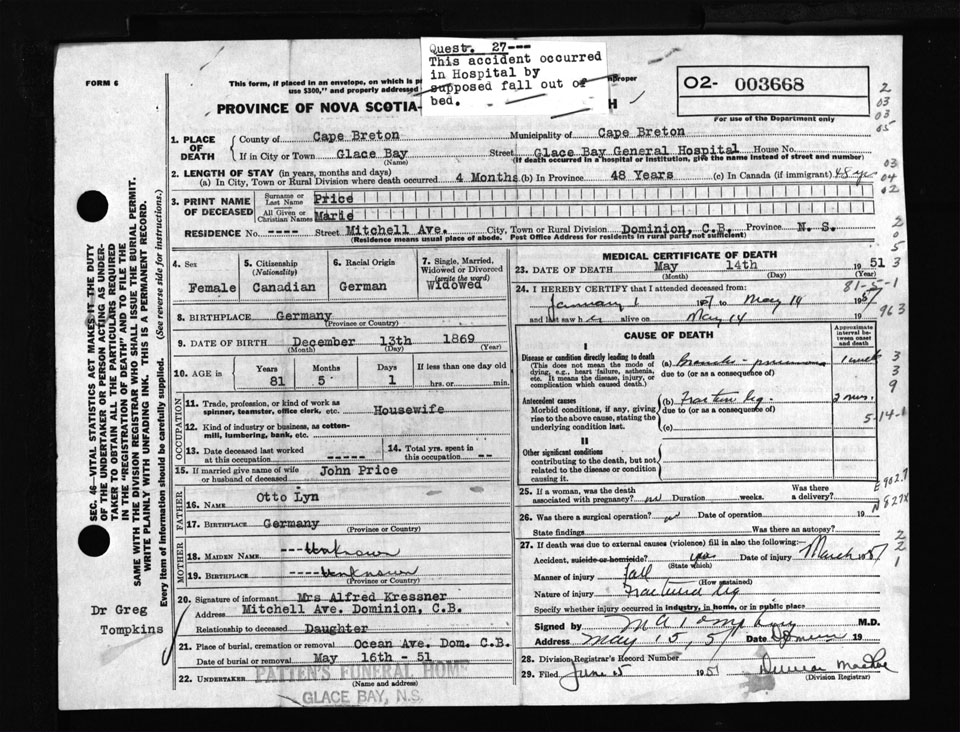 Quest. 27---
This accident occurred
in Hospital by
supposed fall out of
bed.
FORM 6
This form, if placed in an envelope, on which is
improper
use $300," and properly addressed
PROVINCE OF NOVA SCOTIA-
H
O2- 003668
For use of the Department only
1. PLACE OF DEATH
County of Cape Breton Municipality of Cape Breton
If in City or Town Glace Bay Street Glace Bay General Hospital House No.
(Name) (If death occurred in a hospital or institution, give the name instead of street and number)
2. LENGTH OF STAY (in years, months and days)
(a) In City, Town or Rural Division where death occurred 4 Months (b) In Province 48 Years (c) In Canada (if immigrant) 48 yrs
3. PRINT NAME OF DECEASED
Surname or Last Name Price
All Given or Christian Names Marie
RESIDENCE No. ---- Street Mitchell Ave. City, Town or Rural Division Dominion, C.B. Province N. S.
(Residence means usual place of abode. Post Office Address for residents in rural parts not sufficient)
4. Sex Female
5. Citizenship (Nationality) Canadian
6. Racial Origin German
7. Single, Married, Widowed or Divorced (write the word) Widowed
8. BIRTHPLACE Germany
(Province or Country)
9. DATE OF BIRTH December 13th 1869
(Month) (Day) (Year)
10. AGE in Years 81 Months 5 Days 1 If less than one day old hrs. or min.
OCCUPATION
11. Trade, profession, or kind of work as spinner, teamster, office clerk, etc. Housewife
12. Kind of industry or business, as cotton-mill, lumbering, bank, etc.
13. Date deceased last worked at this occupation -----
14. Total yrs. spent in this occupation --
15. If married give name of wife or husband of deceased John Price
FATHER
16. Name Otto Lyn
17. Birthplace Germany
(Province or Country)
MOTHER
18. MAIDEN NAME ---Unknown
19. Birthplace ---Unknown
(Province or Country)
20. Signature of informant Mrs Alfred Kressner
Address Mitchell Ave. Dominion, C.B.
Relationship to deceased Daughter
21. Place of burial, cremation or removal Ocean Ave. Dom. C.B.
Date of burial or removal May 16th - 51
22. UNDERTAKER PATTEN'S FUNERAL HOME
(Name and address)
GLACE BAY, N.S.
MEDICAL CERTIFICATE OF DEATH
23. DATE OF DEATH May 14th 1951
(Month) (Day) (Year)
81-5-1
24. I HEREBY CERTIFY that I attended deceased from:
January 1 1951 to May 14 1951
and last saw h er alive on May 14 19
CAUSE OF DEATH
Approximate interval between onset and death
I
Disease or condition directly leading to death
(This does not mean the mode of dying, e.g., heart failure, asthenia, etc. It means the disease, injury, or complication which caused death.)
(a) Broncho-pneumonia 1 week
due to (or as a consequence of)
Antecedent causes
Morbid conditions, if any, giving rise to the above cause, stating the underlying condition last.
(b) Fracture leg. 2 mos.
due to (or as a consequence of)
(c)
5-14-1
II
Other significant conditions
contributing to the death, but not related to the disease or condition causing it.
25. If a woman, was the death associated with pregnancy? no Duration weeks. Was there a delivery?
26. Was there a surgical operation? no Date of operation 19
State findings Was there an autopsy?
27. If death was due to external causes (violence) fill in also the following:
Accident, suicide or homicide? yes Date of injury March 1951
(State which)
Manner of injury fall
(How sustained)
Nature of injury Fractured leg
Specify whether injury occurred in industry, in home, or in public place
Signed by M.D.
Address May 15, 51 Date 19
28. Division Registrar's Record Number
29. Filed June 15 1951
(Division Registrar)
SEC. 46—VITAL STATISTICS ACT MAKES IT THE DUTY
OF THE UNDERTAKER OR PERSON ACTING AS UNDER-
TAKER TO OBTAIN ALL THE PARTICULARS REQUIRED
IN THE "REGISTRATION OF DEATH" AND TO FILE THE
SAME WITH THE DIVISION REGISTRAR WHO SHALL ISSUE THE BURIAL PERMIT.
WRITE PLAINLY WITH UNFADING INK. THIS IS A PERMANENT RECORD.
Every item of information should be carefully supplied. (See reverse side for instructions.)
Dr Greg
Tompkins